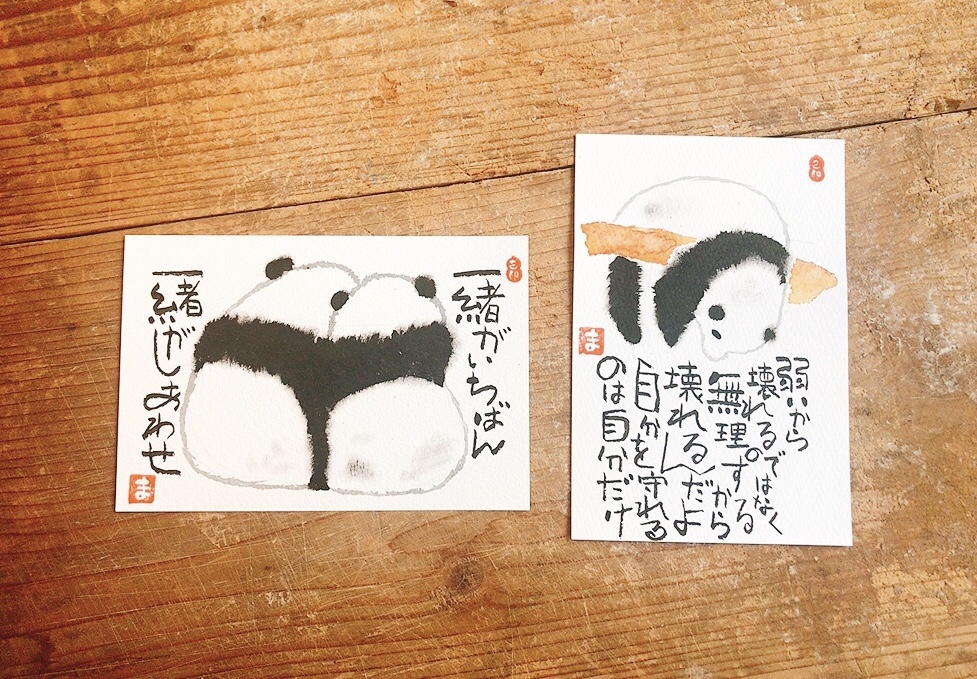 一緒がいちばん
一緒がしあわせ
ま
弱いから
壊れるのではなく
無理するから
壊れるんだよ
自分を守れる
のは自分だけ
ま